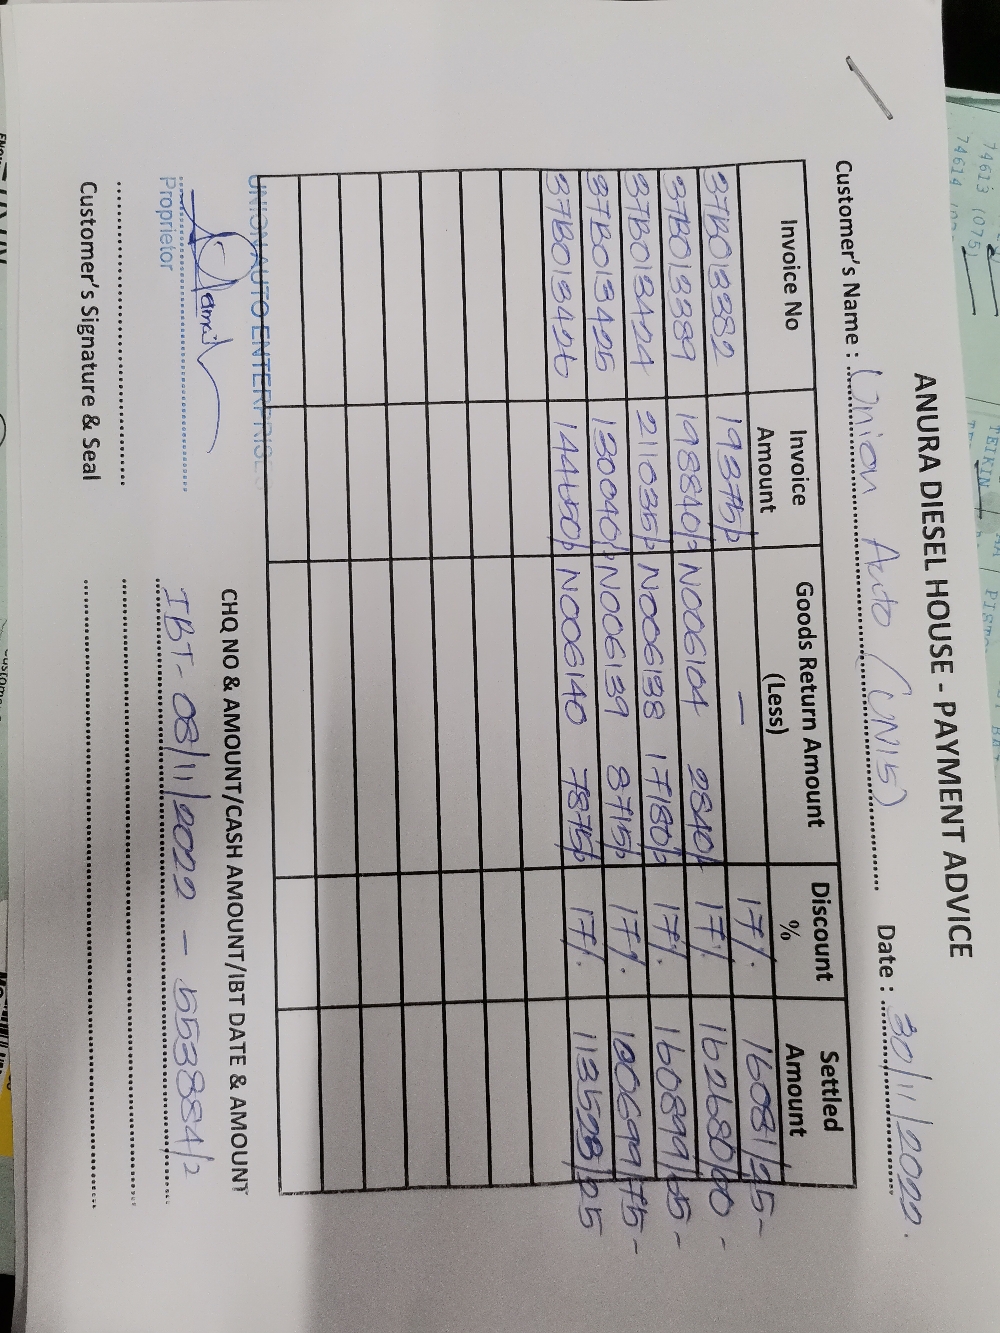 ANURA DIESEL HOUSE - PAYMENT ADVICE
Customer's Name : Union Auto (UN15) Date : 30/11/2022.
Invoice No Invoice Amount Goods Return Amount (Less) Discount % Settled Amount
37B013382 19375/= — 17%. 16081/25-
37B013389 198840/= N006104 2840/= 17% 162680/00-
37B013424 211035/= N006138 17180/= 17%. 160899/65-
37B013425 130040/= N006139 8715/= 17%. 100699/75-
37B013426 144650/= N006140 7875/= 17%. 113523/25
UNION AUTO ENTERPRISE
CHQ NO & AMOUNT/CASH AMOUNT/IBT DATE & AMOUNT
Proprietor
IBT - 08/11/2022 - 553884/=
Customer's Signature & Seal